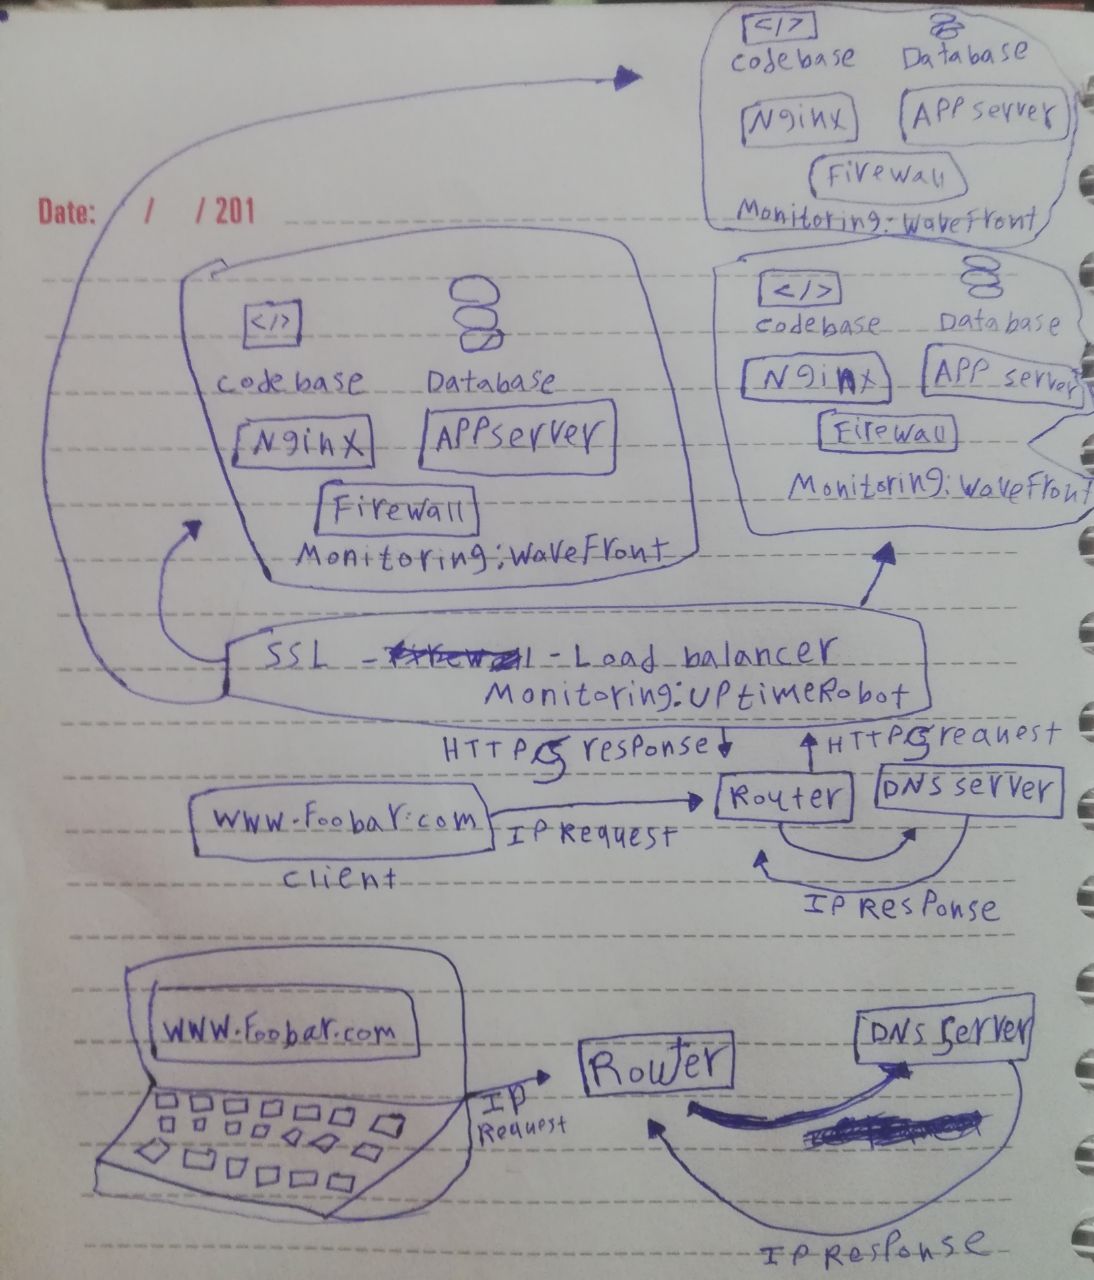 </> 
codebase Database
Nginx APP server
Firewall
Monitoring: WaveFront
Date: / / 201
</>
codebase Database
Nginx APP server
Firewall
Monitoring: WaveFront
</>
codebase Database
Nginx APP server
Firewall
Monitoring: WaveFront
SSL - - Load balancer
Monitoring: UPtimeRobot
HTTPS response HTTPS request
www.Foobar.com Router DNS server
IP Request
client
IP Response
www.Foobar.com
Router DNS server
IP
Request
IP Response